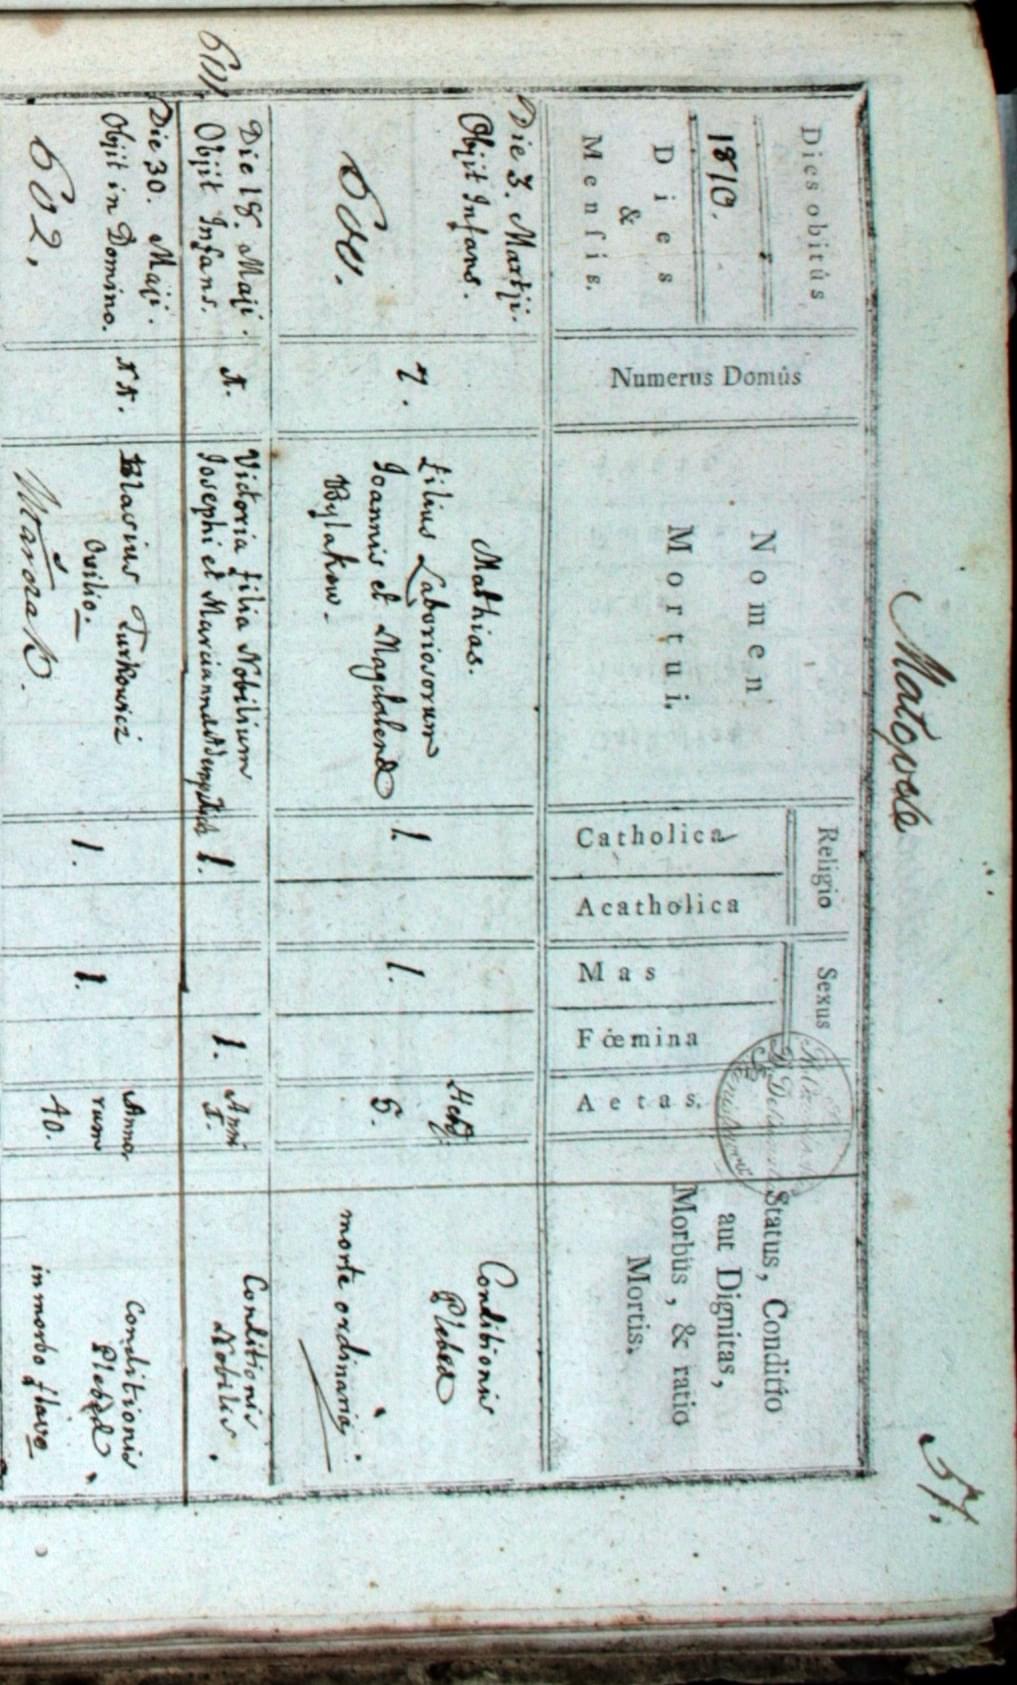 Małopole
57.
Dies obitûs
1810.
Dies
&
Mensis.
Numerus Domûs
Nomen
Mortui.
Religio
Catholica
Acatholica
Sexus
Mas
Fœmina
Aetas.
Status, Conditio
aut Dignitas,
Morbus, & ratio
Mortis.
Die 3. Martji.
Objit Infans.
600.
7.
Mathias.
Filius Laboriosorum
Joannis et Magdalenæ
Bylakow.
1
1.
6.
Conditionis
Plebeæ
morte ordinaria.
601.
Die 18. Maji.
Objit Infans.
1.
Victoria filia Nobilium
Josephi et Mariannæ
1.
1.
Anni
I.
Conditionis
Nobilis.
Die 30. Maji.
Objit in Domino.
602,
11.
Blasius Turkowicz
Ovilio.
1.
1.
Anno
rum
40.
Conditionis
Plebeæ
in morbo flavo